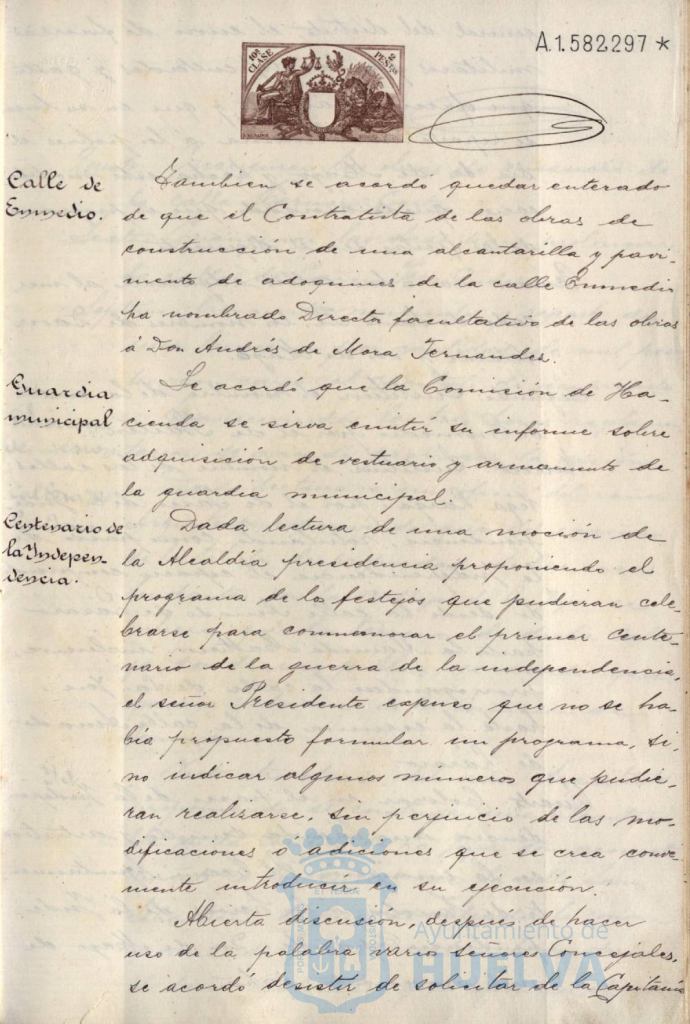 A.1.582297 *
10ª CLASE
2 PESETAS
Calle de
Enmedio.
Tambien se acordó quedar enterado
de que el Contratista de las obras de
construcción de una alcantarilla y pavi-
mento de adoquines de la calle Enmedio
ha nombrado Director facultativo de las obras
á Don Andrés de Mora Fernandez.
Guardia
municipal
Se acordó que la Comisión de Ha-
cienda se sirva emitir su informe sobre
adquisición de vestuario y armamento de
la guardia municipal.
Centenario de
la Indepen-
dencia.
Dada lectura de una moción de
la Alcaldía presidencia proponiendo el
programa de los festejos que pudieran cele-
brarse para conmemorar el primer cente-
nario de la guerra de la independencia,
el señor Presidente expuso que no se ha-
bía propuesto formular un programa, si-
no indicar algunos números que pudie-
ran realizarse, sin perjuicio de las mo-
dificaciones ó adiciones que se crea conve-
niente introducir en su ejecución.
Abierta discusión, después de hacer
uso de la palabra varios señores Concejales,
se acordó desistir de solicitar de la Capitanía
Ayuntamiento de
HUELVA